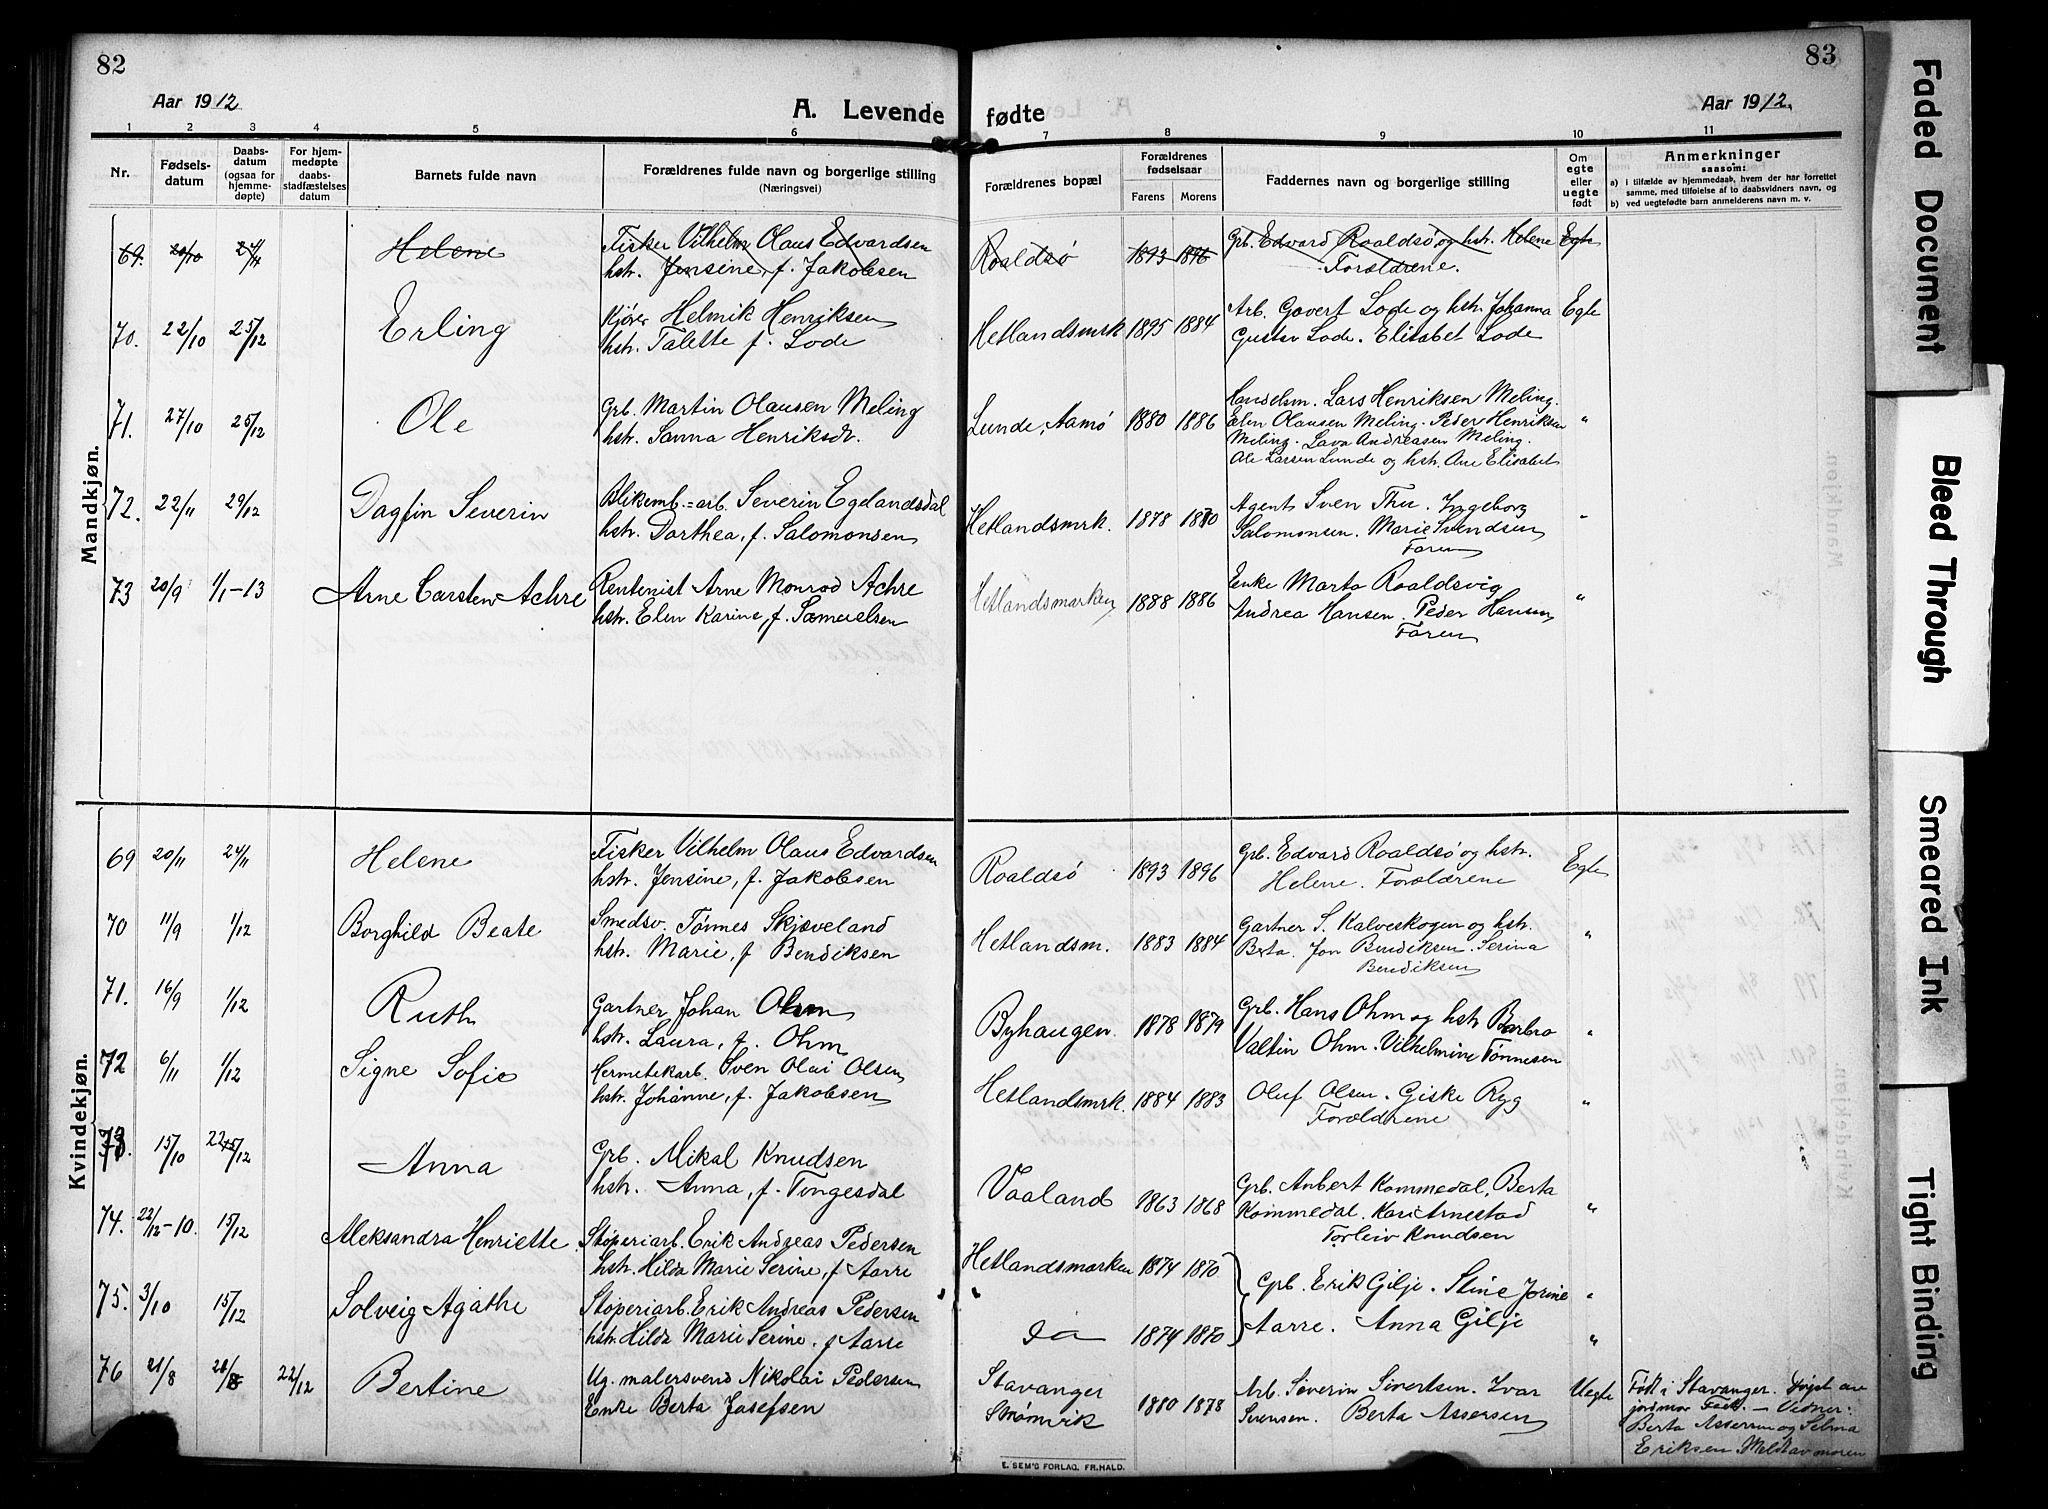 82
83
Aar 1912
A. Levende fødte
Aar 1912.
1 2 3 4 5 6 7 8 9 10 11
Nr.
Fødsels-
datum
Daabs-
datum
(ogsaa for
hjemme-
døpte)
For hjem-
medøpte
daabs-
stadfæstelses
datum
Barnets fulde navn
Forældrenes fulde navn og borgerlige stilling
(Næringsvei)
Forældrenes bopæl
Forældrenes
fødselsaar
Farens Morens
Faddernes navn og borgerlige stilling
Om
egte
eller
uegte
født
Anmerkninger
saasom:
a) i tilfælde av hjemmedaab, hvem der har forrettet
samme, med tilføielse af to daabsvidners navn, og
b) ved uegtefødte barn anmelderens navn m. v.
Mandkjøn.
69. 20/10 24/11 Helene Fisker Vilhelm Olaus Edvardsen Roaldsø 1893 1896 Grb. Edvard Roaldsø og hstr. Helene Egte
hstr. Jensine, f. Jakobsen Forældrene.
70. 22/10 25/12 Erling Kjører Helmik Henriksen Hetlandsmrk 1895 1884 Arb. Govert Lode og hstr. Johanna Egte
hstr. Talette f. Lode Gustav Lode. Elisabet Lode
71. 27/10 25/12 Ole Grb. Martin Olausen Meling Lunde, Aamø 1880 1886 Handelsm. Lars Henriksen Meling.
hstr. Sanna Henriksdr. Elen Olausen Meling. Peder Henriksen "
Meling. Lava Andreasen Meling.
Ole Larsen Lunde og hstr. Ane Elisabet
72. 22/11 29/12 Dagfin Severin Blikemb.=arb. Severin Egelandsdal Hetlandsmrk. 1878 1880 Agent Sven Thu. Ingeborg "
hstr. Dorthea, f. Salomonsen Salomonsen. Marie Svendsen
Faren
73 20/9 1/1-13 Arne Carsten Achre Rentenist Arne Monrad Achre Hetlandsmarken 1888 1886 Enke Marta Roaldsvig "
hstr. Elen Karine, f. Samuelsen Andrea Hansen. Peder Hansen
Faren
Kvindekjøn.
69 20/11 24/11 Helene Fisker Vilhelm Olaus Edvardsen Roaldsø 1893 1896 Grb. Edvard Roaldsø og hstr. Egte
hstr. Jensine, f. Jakobsen Helene. Forældrene
70 11/9 1/12 Borghild Beate Smedsv. Tønnes Skjæveland Hetlandsm. 1883 1884 Gartner S. Kalveskogen og hstr. "
hstr. Marie, f Bendiksen Berta. Jon Bendiksen. Serina
Bendiksen
71. 16/9 1/12 Ruth Gartner Johan Ohm Byhaugen 1878 1879 Grb. Hans Ohm og hstr Barbro "
hstr. Laura, f. Ohm Valtin Ohm. Vilhelmine Tønnesen
72 6/11 1/12 Signe Sofie Hermetekarb. Sven Olai Olsen Hetlandsmrk. 1884 1883 Oluf Olsen. Giske Ryg "
hstr. Johanne, f. Jakobsen Forældrene
73. 15/10 22/12 Anna Grb. Mikal Knudsen Vaaland 1863 1868 Grb. Anbert Kommedal, Berta "
hstr. Anna, f. Tingesdal Kommedal. Kari Arnestad
Torleiv Knudsen
74. 22/12-10. 15/12 Aleksandra Henriette Støperiarb. Erik Andreas Pedersen Hetlandsmarken 1874 1870 Grb. Erik Gilje. Stine Jorine "
hstr. Hilda Marie Serine, f Aarre Aarre. Anna Gilje
75. 3/10 15/12 Solveig Agathe Støperiarb. Erik Andreas Pedersen " do 1874 1870 "
hstr. Hilda Marie Serine, f Aarre
76 21/8 22/12 Bertine Ug. malersvend Nikolai Pedersen Stavanger 1880 1878 Arb. Severin Sivertsen. Ivar Uegte Født i Stavanger. Døpt av
Enke Berta Josefsen Strømvik Sørensen. Berta Assersen jordmor Fisk. — Vidner:
Berta Assersen og Selma
Eriksen Meldt av moren
E. SEM'S FORLAG. FR.HALD.
Faded Document
Bleed Through
Smeared Ink
Tight Binding